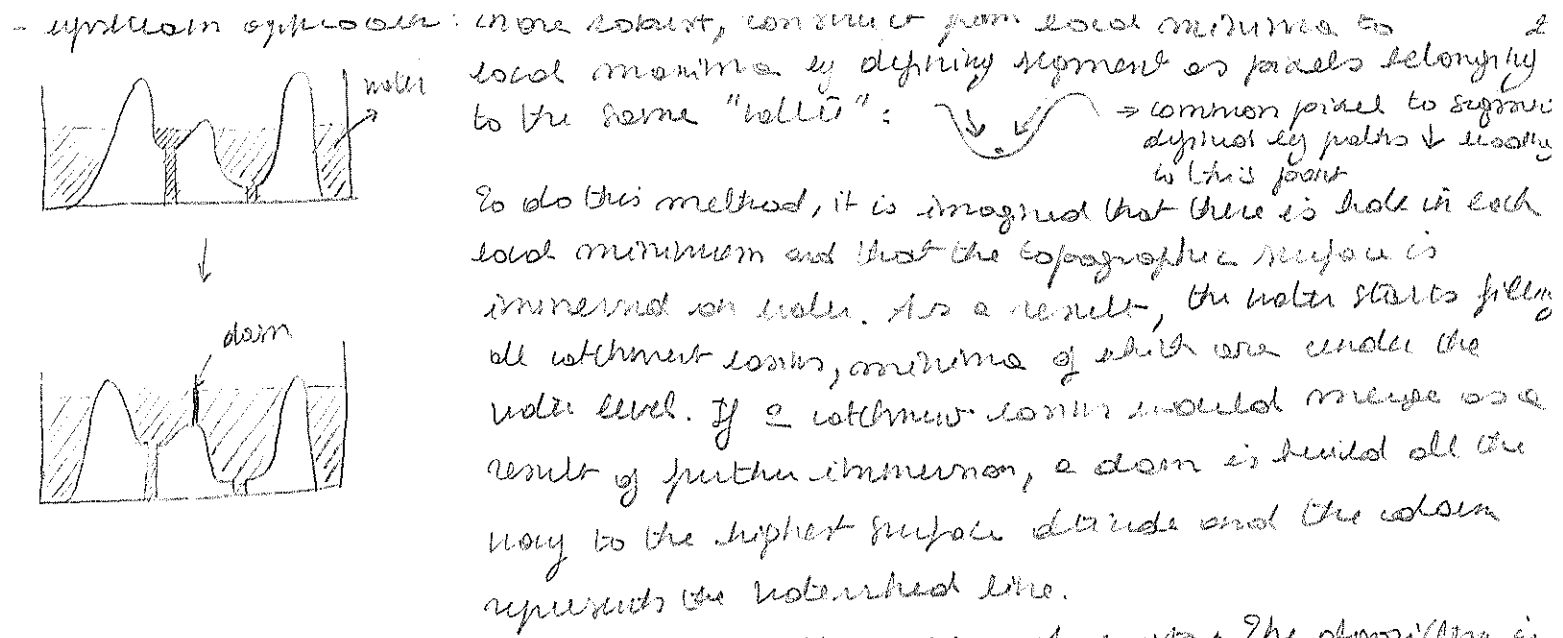 - upstream approach: more robust, construct from local minima to 2
local maxima by defining segment as pixels belonging
to the same "vallé": ⇒ common pixel to segment
defined by paths ↓ leading
to this point
water
To do this method, it is imagined that there is hole in each
local minimum and that the topographic surface is
immersed on water. As a result, the water starts filling
all catchment basins, minima of which are under the
water level. If 2 catchment basins would merge as a
result of further immersion, a dam is build all the
way to the highest surface altitude and the dam
represents the watershed line.
dam
The algorithm is